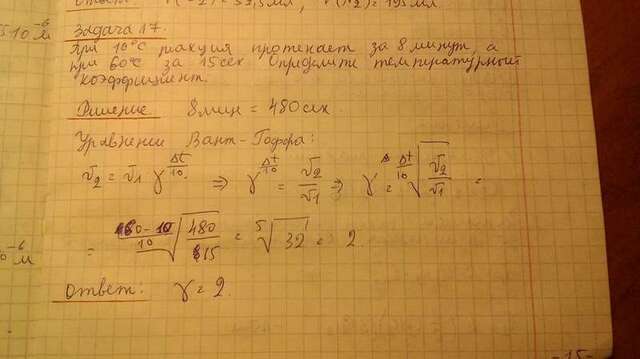 Ответ: V( 2) = 52,5 мл, V(N2) = 195 мл.
5·10⁻⁶ м
Задача 17.
При 10°C реакция протекает за 8 минут, а
при 60°C за 15 сек Определите температурный
коэффициент.
Решение 8 мин = 480 сек
Уравнении Вант-Гоффа:
v2 = v1 γ^(Δt/10) ⇒ γ^(Δt/10) = v2/v1 ⇒ γ = ^(Δt/10)√(v2/v1) =
= ^((60-10)/10)√(480/15) = ⁵√32 = 2
0⁻⁶ м
Ответ: γ = 2.
-15-